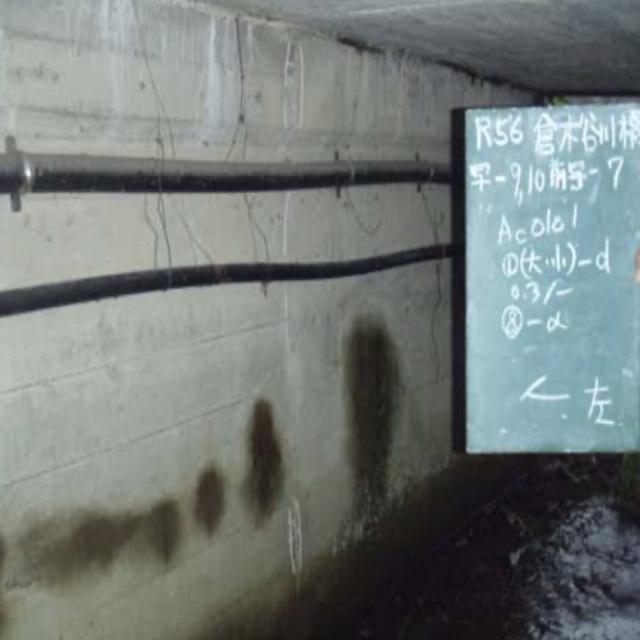 R56 倉木谷川橋
写-9,10 前写-7
Ac0101
①(大.小)-d
0.3/-
⑧-d
左